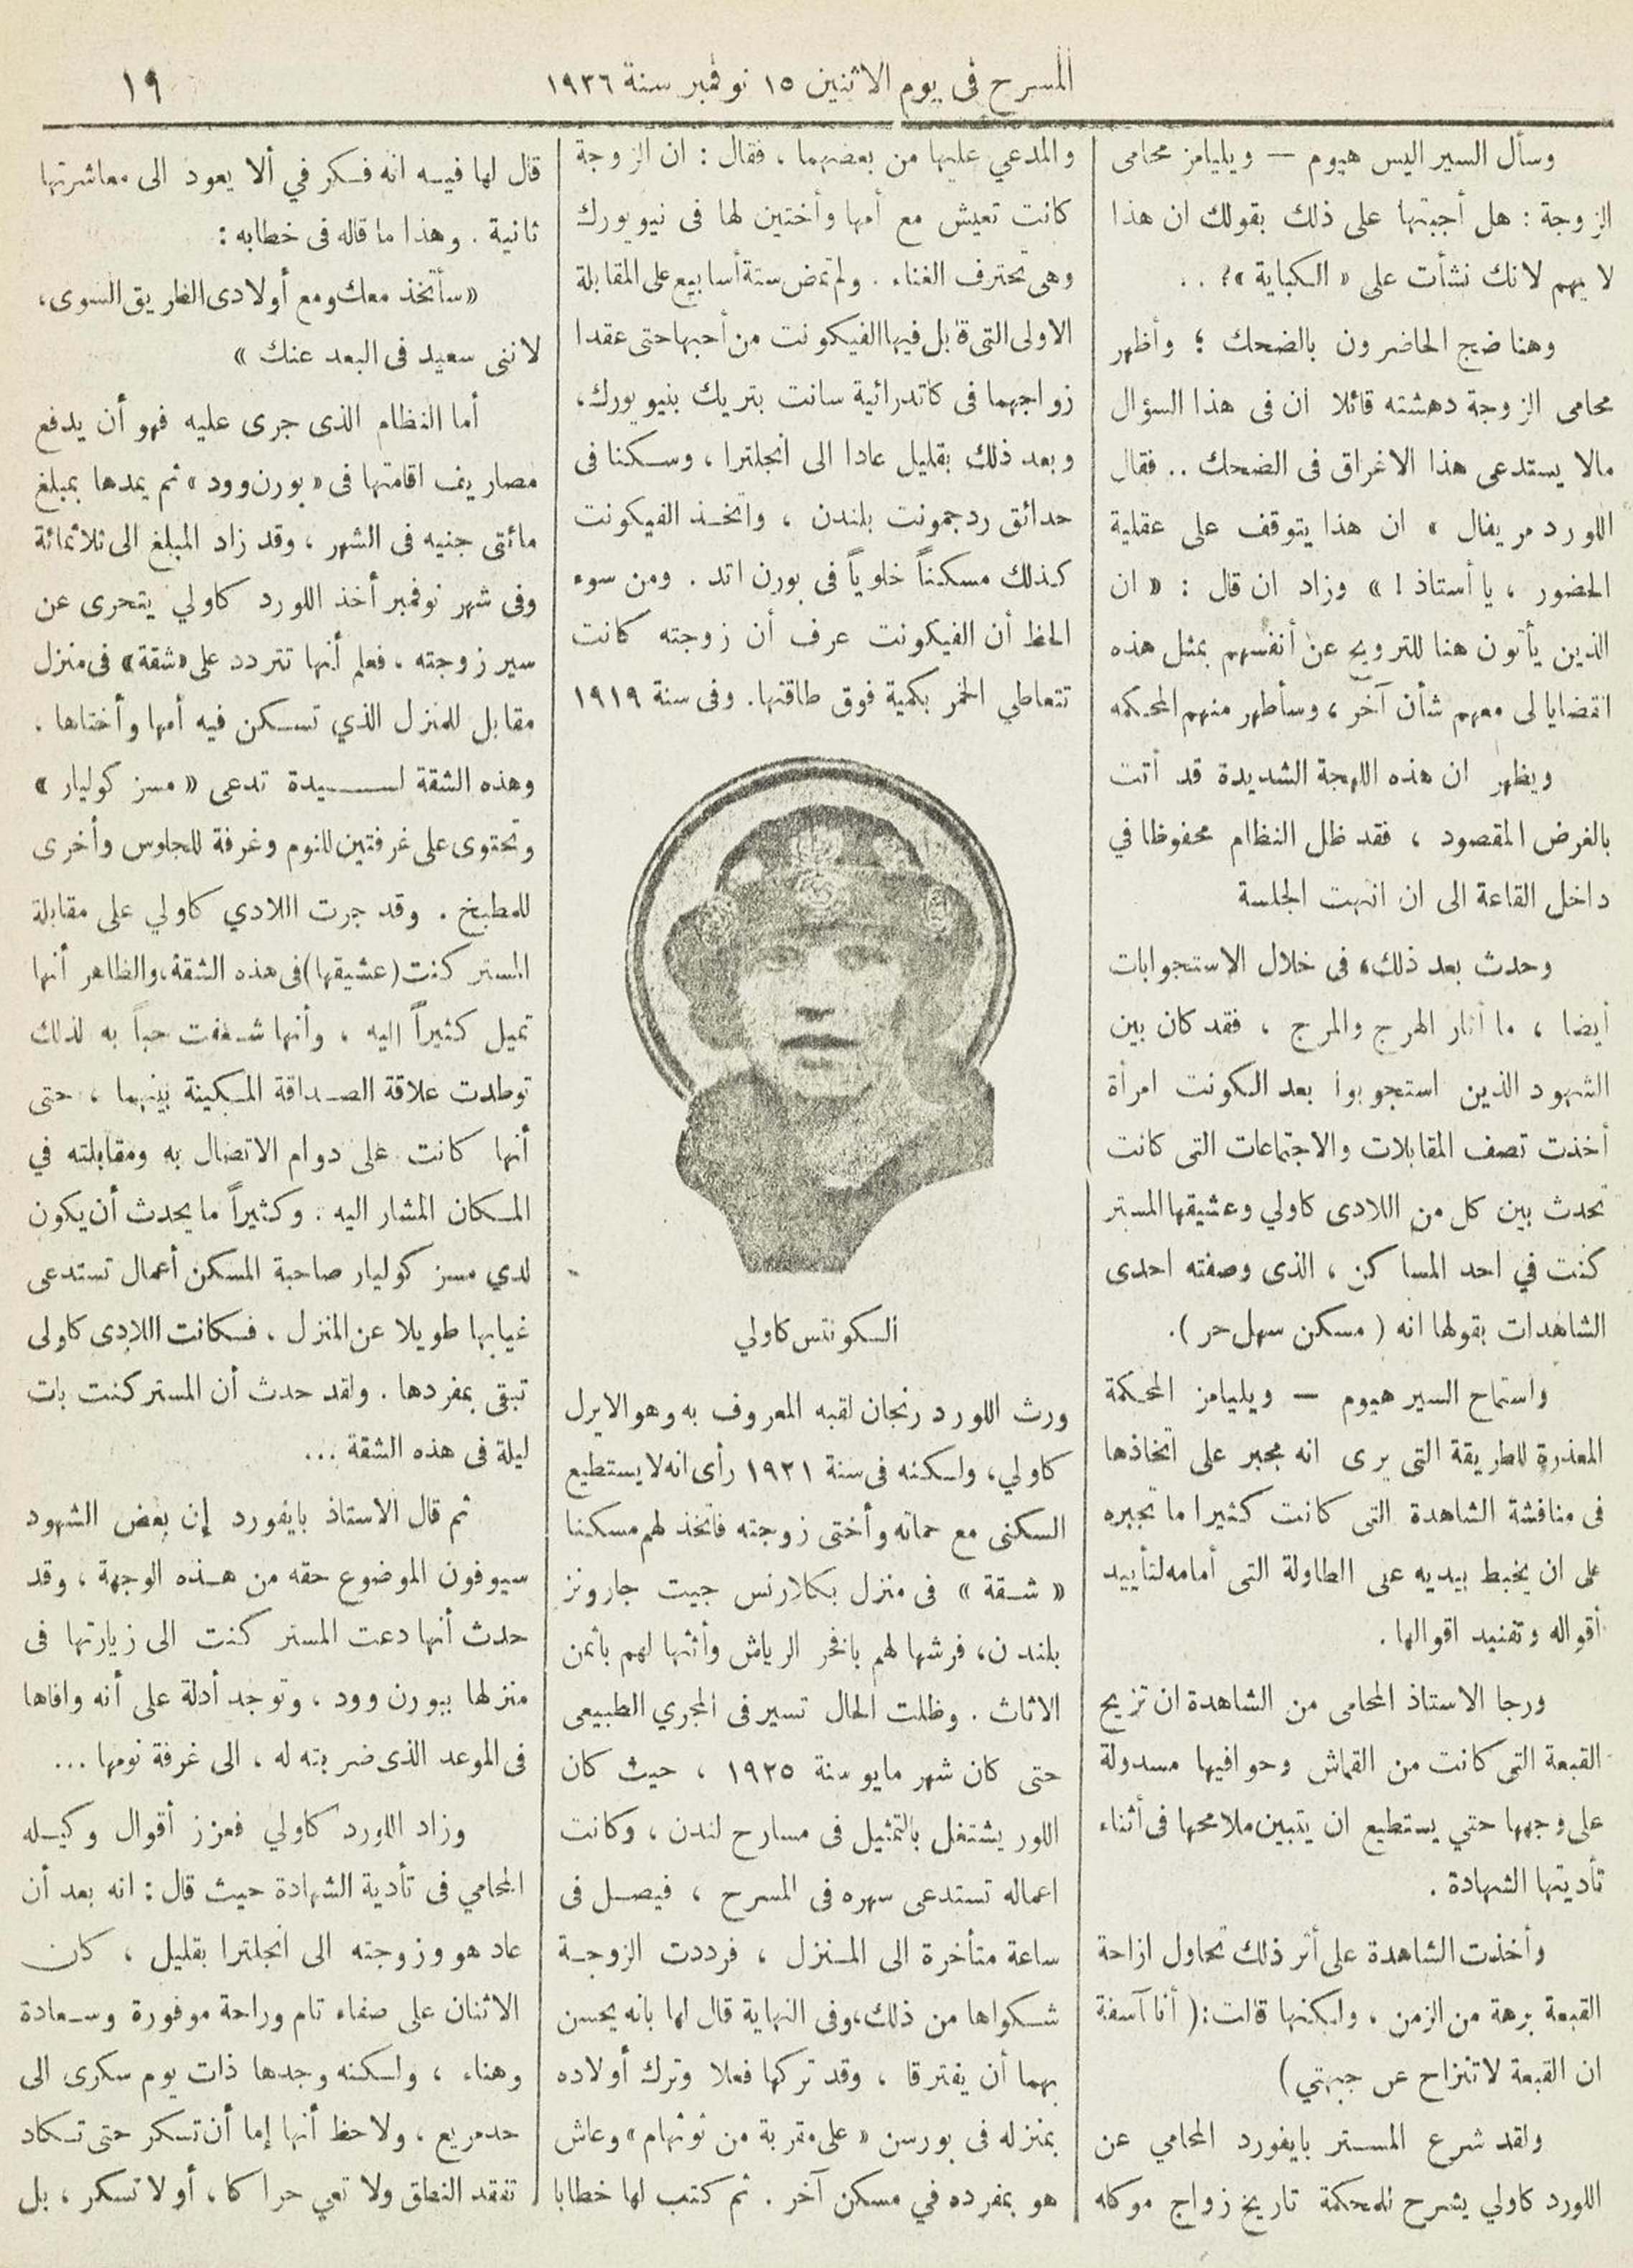 المسرح فى يوم الاثنين ١٥ نوفمبر سنة ١٩٢٦
١٩
وسأل السير اليس هيوم — ويليامز محامى
الزوجة : هل أجبتها على ذلك بقولك ان هذا
لا يهم لانك نشأت على « الكباية »؟ . .
وهنا ضج الحاضرون بالضحك ؛ وأظهر
محامى الزوجة دهشته قائلا ان فى هذا السؤال
مالا يستدعى هذا الاغراق فى الضحك .. فقال
اللورد مريفال » ان هذا يتوقف على عقلية
الحضور ، يا أستاذ ! » وزاد ان قال : « ان
الذين يأتون هنا للترويح عن أنفسهم بمثل هذه
القضايا لى معهم شأن آخر ، وسأطهر منهم المحكمه
ويظهر ان هذه اللهجة الشديدة قد أتت
بالغرض المقصود ، فقد ظل النظام محفوظا في
داخل القاعة الى ان انتهت الجلسة
وحدث بعد ذلك، فى خلال الاستجوابات
أيضا ، ما أثار الهرج والمرج ، فقد كان بين
الشهود الذين استجوبوا بعد الكونت امرأة
أخذت تصف المقابلات والاجتماعات التى كانت
تحدث بين كل من اللادى كاولي وعشيقها المستر
كنت في احد المساكن ، الذى وصفته احدى
الشاهدات بقولها انه ( مسكن سهل حر ).
واستماح السير هيوم — ويليامز المحكمة
المعذرة للطريقة التى يرى انه مجبر على اتخاذها
فى مناقشة الشاهدة التى كانت كثيرا ما تجبره
على ان يخبط بيديه على الطاولة التى أمامه لتأييد
أقواله وتفنيد اقوالها .
ورجا الاستاذ المحامى من الشاهدة ان تزيح
القبعة التى كانت من القماش وحوافيها مسدولة
على وجهها حتي يستطيع ان يتبين ملامحها فى أثناء
تأديتها الشهادة .
وأخذت الشاهدة على أثر ذلك تحاول ازاحة
القبعة برهة من الزمن ، ولكنها قالت :( أنا آسفة
ان القبعة لا تنزاح عن جبهتي )
ولقد شرع المستر بايفورد المحامي عن
اللورد كاولي يشرح للمحكمة تاريخ زواج موكله
والمدعي عليها من بعضهما ، فقال : ان الزوجة
كانت تعيش مع أمها وأختين لها فى نيويورك
وهى تحترف الغناء . ولم تمض ستة أسابيع على المقابلة
الاولى التى قابل فيها الفيكونت من أحبها حتى عقدا
زواجهما فى كاتدرائية سانت بتريك بنيويورك،
وبعد ذلك بقليل عادا الى انجلترا ، وسكنا فى
حدائق ردجمونت بلندن ، واتخذ الفيكونت
كذلك مسكناً خلوياً فى بورن اتد . ومن سوء
الحظ أن الفيكونت عرف أن زوجته كانت
تتعاطي الخمر بكمية فوق طاقتها. وفى سنة ١٩١٩
الكونتس كاولي
ورث اللورد رنجان لقبه المعروف به وهو الايرل
كاولي، ولكنه فى سنة ١٩٢١ رأى انه لا يستطيع
السكنى مع حماته وأختى زوجته فاتخذ لهم مسكنا
« شقة » فى منزل بكلارنس جيت جاردنز
بلندن، فرشها لهم بافخر الرياش وأثثها لهم بأثمن
الاثاث . وظلت الحال تسير فى المجري الطبيعى
حتى كان شهر مايو سنة ١٩٢٥ ، حيث كان
اللور يشتغل بالتمثيل فى مسارح لندن ، وكانت
اعماله تستدعى سهره فى المسرح ، فيصل فى
ساعة متأخرة الى المنزل ، فرددت الزوجة
شكواها من ذلك، وفى النهاية قال لها بانه يحسن
بهما أن يفترقا ، وقد تركها فعلا وترك أولاده
بمنزله فى بورسن « على مقربة من نوتهام » وعاش
هو بمفرده في مسكن آخر . ثم كتب لها خطابا
قال لها فيه انه فكر في ألا يعود الى معاشرتها
ثانية . وهذا ما قاله فى خطابه :
«سأتخذ معك ومع أولادى الطريق السوى،
لاننى سعيد فى البعد عنك »
أما النظام الذى جرى عليه فهو أن يدفع
مصاريف اقامتها فى « بورن وود » ثم يمدها بمبلغ
مائتى جنيه فى الشهر ، وقد زاد المبلغ الى ثلاثمائة
وفى شهر نوفمبر أخذ اللورد كاولي يتحرى عن
سير زوجته ، فعلم أنها تتردد على «شقة» فى منزل
مقابل للمنزل الذي تسكن فيه أمها وأختاها .
وهذه الشقة لسيدة تدعى « مسز كوليار »
وتحتوى على غرفتين للنوم وغرفة للجلوس وأخرى
للمطبخ . وقد جرت اللادي كاولي على مقابلة
المستر كنت (عشيقها) فى هذه الشقة، والظاهر أنها
تميل كثيراً اليه ، وأنها شغفت حباً به لذلك
توطدت علاقة الصداقة المكينة بينهما ، حتى
أنها كانت على دوام الاتصال به ومقابلته في
المكان المشار اليه . وكثيراً ما يحدث أن يكون
لدي مسز كوليار صاحبة المسكن أعمال تستدعى
غيابها طويلا عن المنزل ، فكانت اللادى كاولى
تبقى بمفردها . ولقد حدث أن المستر كنت بات
ليلة فى هذه الشقة ...
ثم قال الاستاذ بايفورد إن بعض الشهود
سيوفون الموضوع حقه من هذه الوجهة ، وقد
حدث أنها دعت المستر كنت الى زيارتها فى
منزلها ببورن وود ، وتوجد أدلة على أنه وافاها
فى الموعد الذى ضربته له ، الى غرفة نومها ...
وزاد اللورد كاولي فعزز أقوال وكيله
المحامي فى تأدية الشهادة حيث قال : انه بعد أن
عاد هو وزوجته الى انجلترا بقليل ، كان
الاثنان على صفاء تام وراحة موفورة وسعادة
وهناء ، ولكنه وجدها ذات يوم سكرى الى
حد مريع ، ولاحظ أنها إما أن تسكر حتى تكاد
تفقد النطق ولا تعي حراكا ، أو لا تسكر ، بل